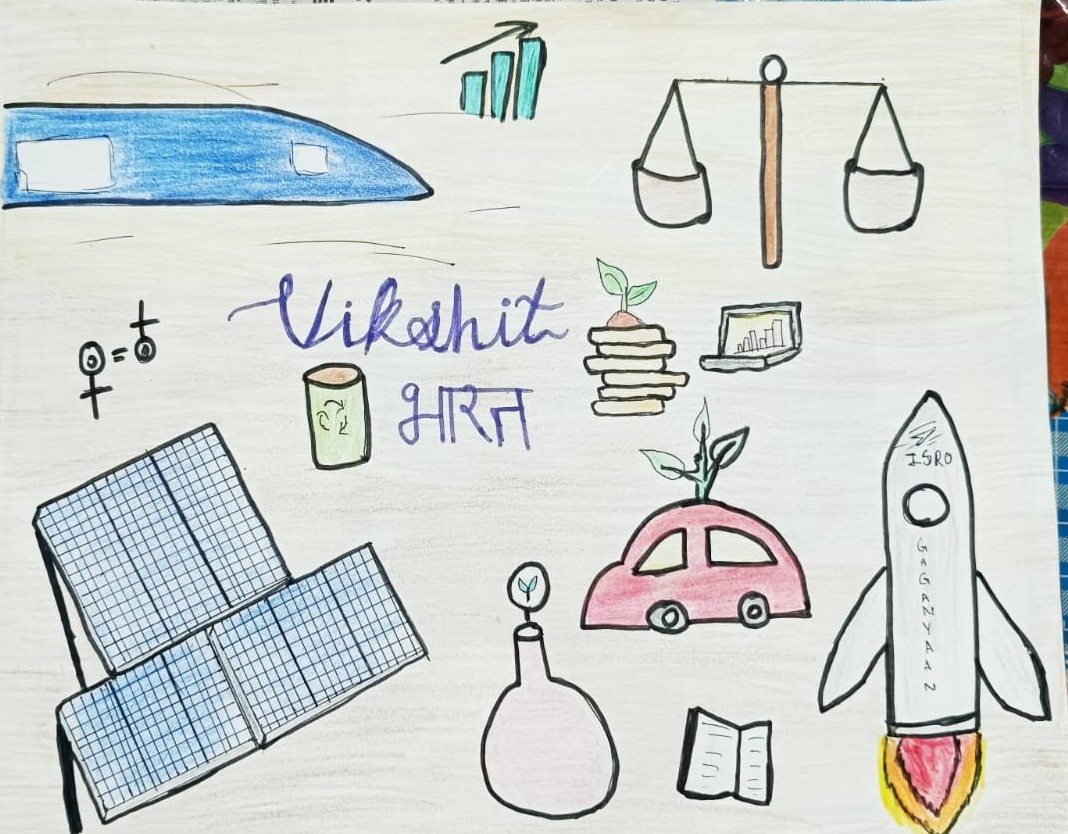 Vikshit
भारत
ISRO
GAGANYAAN